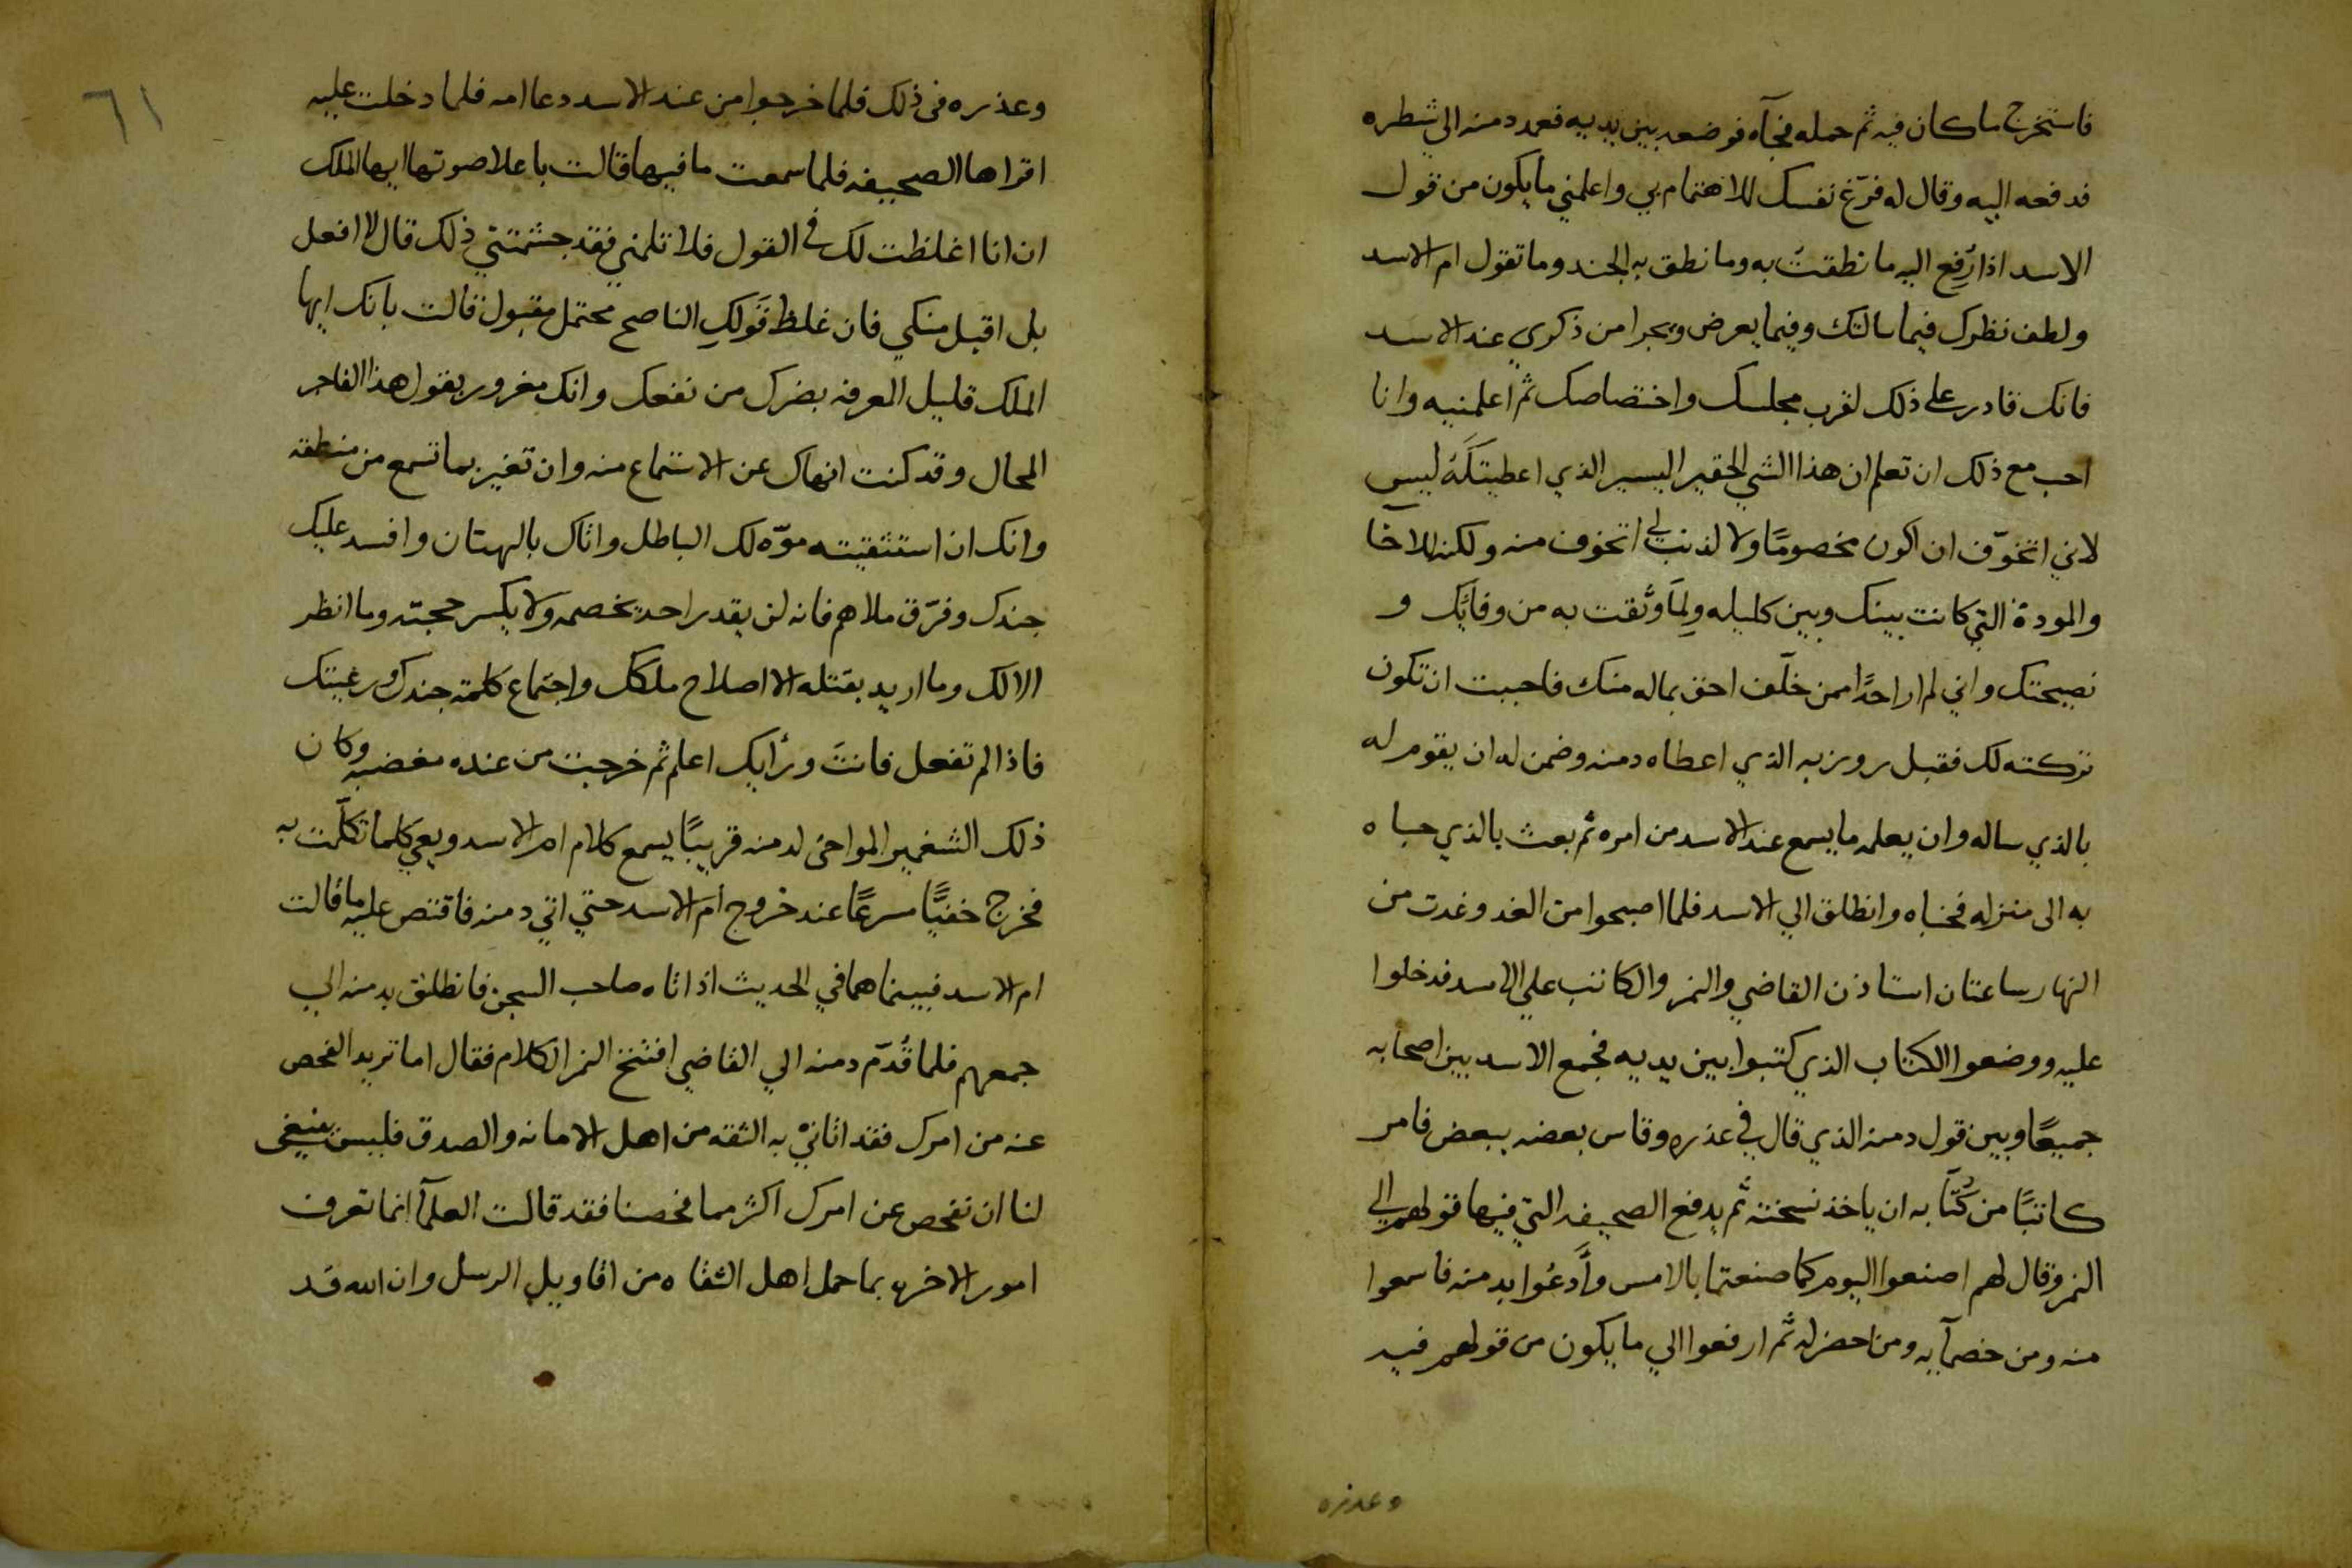 فاستخرج ما كان فيه ثم حمله فجآه فوضعه بين يديه فعمد دمنه الي شطره
فدفعه اليه وقال له فرّغ نفسك للاهتمام بي واعلمني ما يكون من قول
الاسد اذا رُفِع اليه ما نطقتُ به وما نطق به الجند وما تقول ام الاسد
ولطف نظرك فيما سالتك وفيما يعرض ويجرا من ذكري عند الاسد
فانك قادر علي ذلك لقرب مجلسك واختصاصك ثم اعلمنيه وانا
احب مع ذلك ان تعلم ان هذا الشي الحقير اليسير الذي اعطيتكَهُ ليس
لاني اتخوّف ان اكون مخصومًا ولا لذنب لي اتخوف منه ولكنه للاخآ
والمودة التي كانت بينك وبين كليله ولِمَا وثقت به من وفايك و
نصيحتك واني لم ار احدًا ممن خلّف احق بماله منك فاحببت ان تكون
تركته لك فقبل روزبه الذي اعطاه دمنه وضمن له ان يقوم له
بالذي ساله وان يعلمه ما يسمع عند الاسد من امره ثم بعث بالذي حباه
به الى منزله فخباه وانطلق الي الاسد فلما اصبحوا من الغد وغدت من
النهار ساعتان استاذن القاضي والنمر والكاتب علي الاسد فدخلوا
عليه ووضعوا الكتاب الذي كتبوا بين يديه فجمع الاسد بين اصحابه
جميعًا وبين قول دمنه الذي قال في عذره وقاس بعضه ببعض فامر
كاتبًا من كُتّابه ان ياخذ نسخته ثم يدفع الصحيفه التي فيها قولهم الي
النمر وقال لهم اصنعوا اليوم كما صنعتما بالامس وأَدعُوا بدمنه فاسمعوا
منه ومن خصمآيه ومن احضر له ثم ارفعوا الي ما يكون من قولهم فيه
وعذره
٦١
وعذره فى ذلك فلما خرجوا من عند الاسد دعا امه فلما دخلت عليه
اقراها الصحيفه فلما سمعت ما فيها قالت باعلا صوتها ايها الملك
ان انا اغلظت لك في القول فلا تلمني فقد جشمتني ذلك قال لا افعل
بل اقبل منكي فان غلظ قَولكِ الناصح محتمل مقبول قالت بانك ايها
الملك قليل المعرفه بضرك من نفعك وانك مغرور بقول هذا الفاجر
المحال وقد كنت انهاك عن الاستماع منه وان تغير بما تسمع من منطقه
وانك ان استثقيته موّه لك الباطل واتاك بالبهتان وافسد عليك
جندك وفرّق ملاهم فانه لن يقدر احد يخصمه ولا يكسر حجته وما انظر
الا لك وما اريد بقتله الا اصلاح ملكك واجتماع كلمة جندك ورعيتك
فاذا لم تفعل فانتَ ورأيك اعلم ثم خرجت من عنده مغضبه وكان
ذلك الشغبر المواخى لدمنه قريبًا يسمع كلام ام الاسد ويعي كلما تكلّمت به
فخرج خفيًّا مسرعًا عند خروج ام الاسد حتي اتي دمنه فاقتص عليه ما قالت
ام الاسد فبينما هما في الحديث اذ اتاه صاحب السجن فانطلق بدمنه الي
جمعهم فلما قُدّم دمنه الي القاضي افتتح النمر الكلام فقال اما تريد الفحص
عنه من امرك فقد اتاني به الثقه من اهل الامانه والصدق فليس ينبغى
لنا ان نفحص عن امرك اكثر مما فحصنا فقد قالت العلمآ انما تعرف
امور الاخره بما حمل اهل الثقاه من اقاويل الرسل وان الله قد